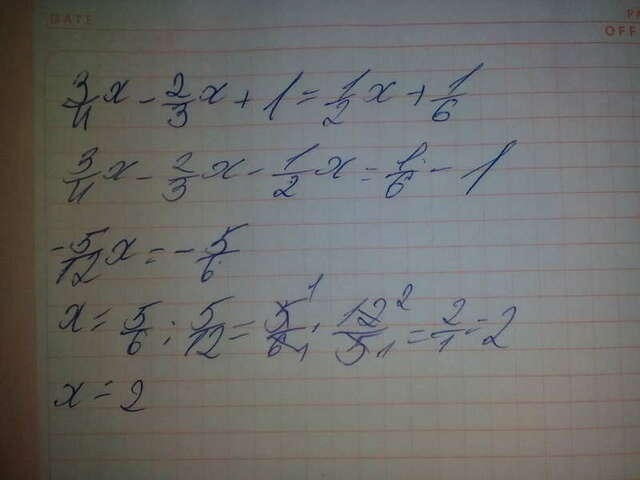 DATE
OFF
3/4 x - 2/3 x + 1 = 1/2 x + 1/6
3/4 x - 2/3 x - 1/2 x = 1/6 - 1
-5/12 x = - 5/6
x = 5/6 : 5/12 = 5/6 · 12/5 = 2/1 = 2
x = 2